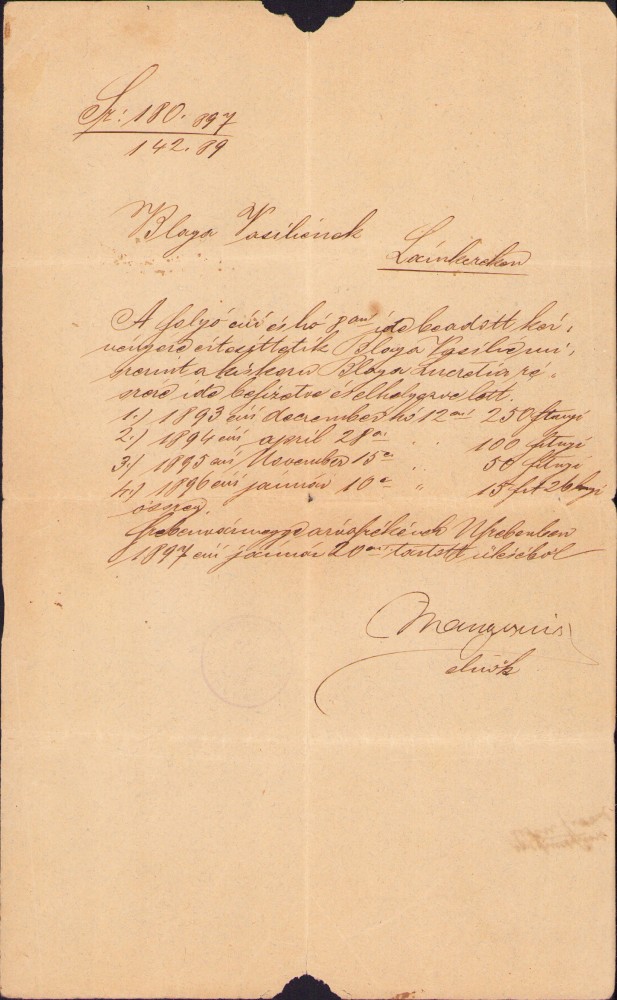 Sz: 180. 897
142. 89
Blaga Vasiliének
Lámkereken
A folyó évi és hó 8 án ide beadott kér-
vényére értesíttetik Blaga Vasilié mi-
szerint a kiskorú Blaga Lucretia ré-
széré ide befizetve és elhelyezve lett.
1./ 1893 évi december hó 12 én 250 frtnyi
2./ 1894 évi april 28 án " 100 frtnyi
3./ 1895 évi November 15 é " 50 frtnyi
4./ 1896 évi január 10 é " 15 frt 26 knyi
összeg.
Szebenvármegye árvaszékének Nszebenben
1897 évi január 20 án tartott üléséből
elnök